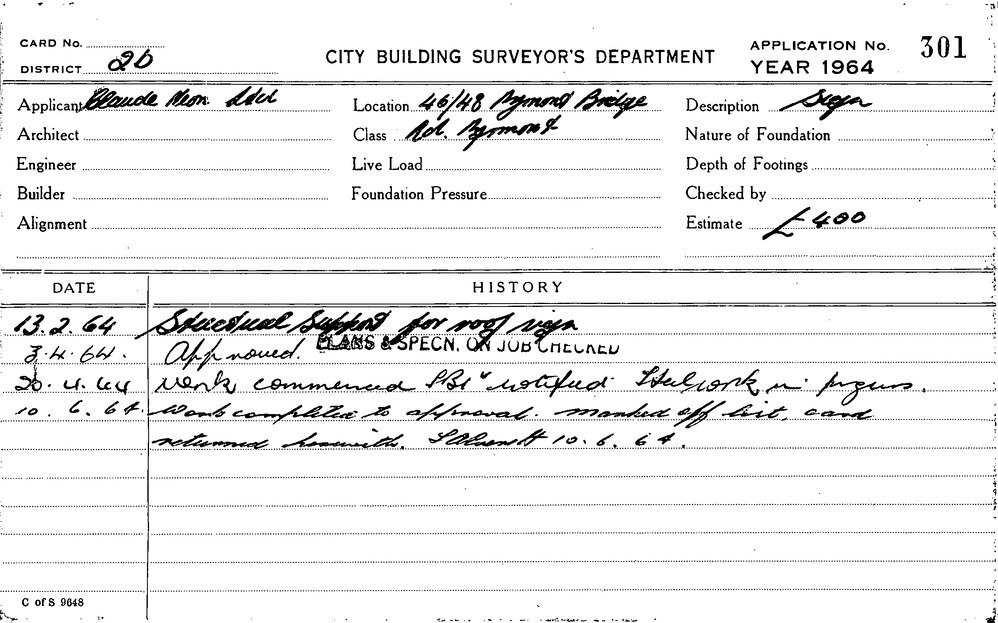 CARD No.
DISTRICT 2b
CITY BUILDING SURVEYOR'S DEPARTMENT
APPLICATION No. 301
YEAR 1964
Applicant Claude Neon Ltd
Location 46/48 Pyrmont Bridge
Description Sign
Architect
Class Rd. Pyrmont
Nature of Foundation
Engineer
Live Load
Depth of Footings
Builder
Foundation Pressure
Checked by
Alignment
Estimate £400
DATE HISTORY
13.2.64 Structual Support for roof sign
3.4.64. Approved. PLANS & SPECN. ON JOB CHECKED
20.4.64 Work commenced notified Steelwork in
10.6.64. Work completed to approval. marked off list, card
returned herewith. 10.6.64.
C of S 9648